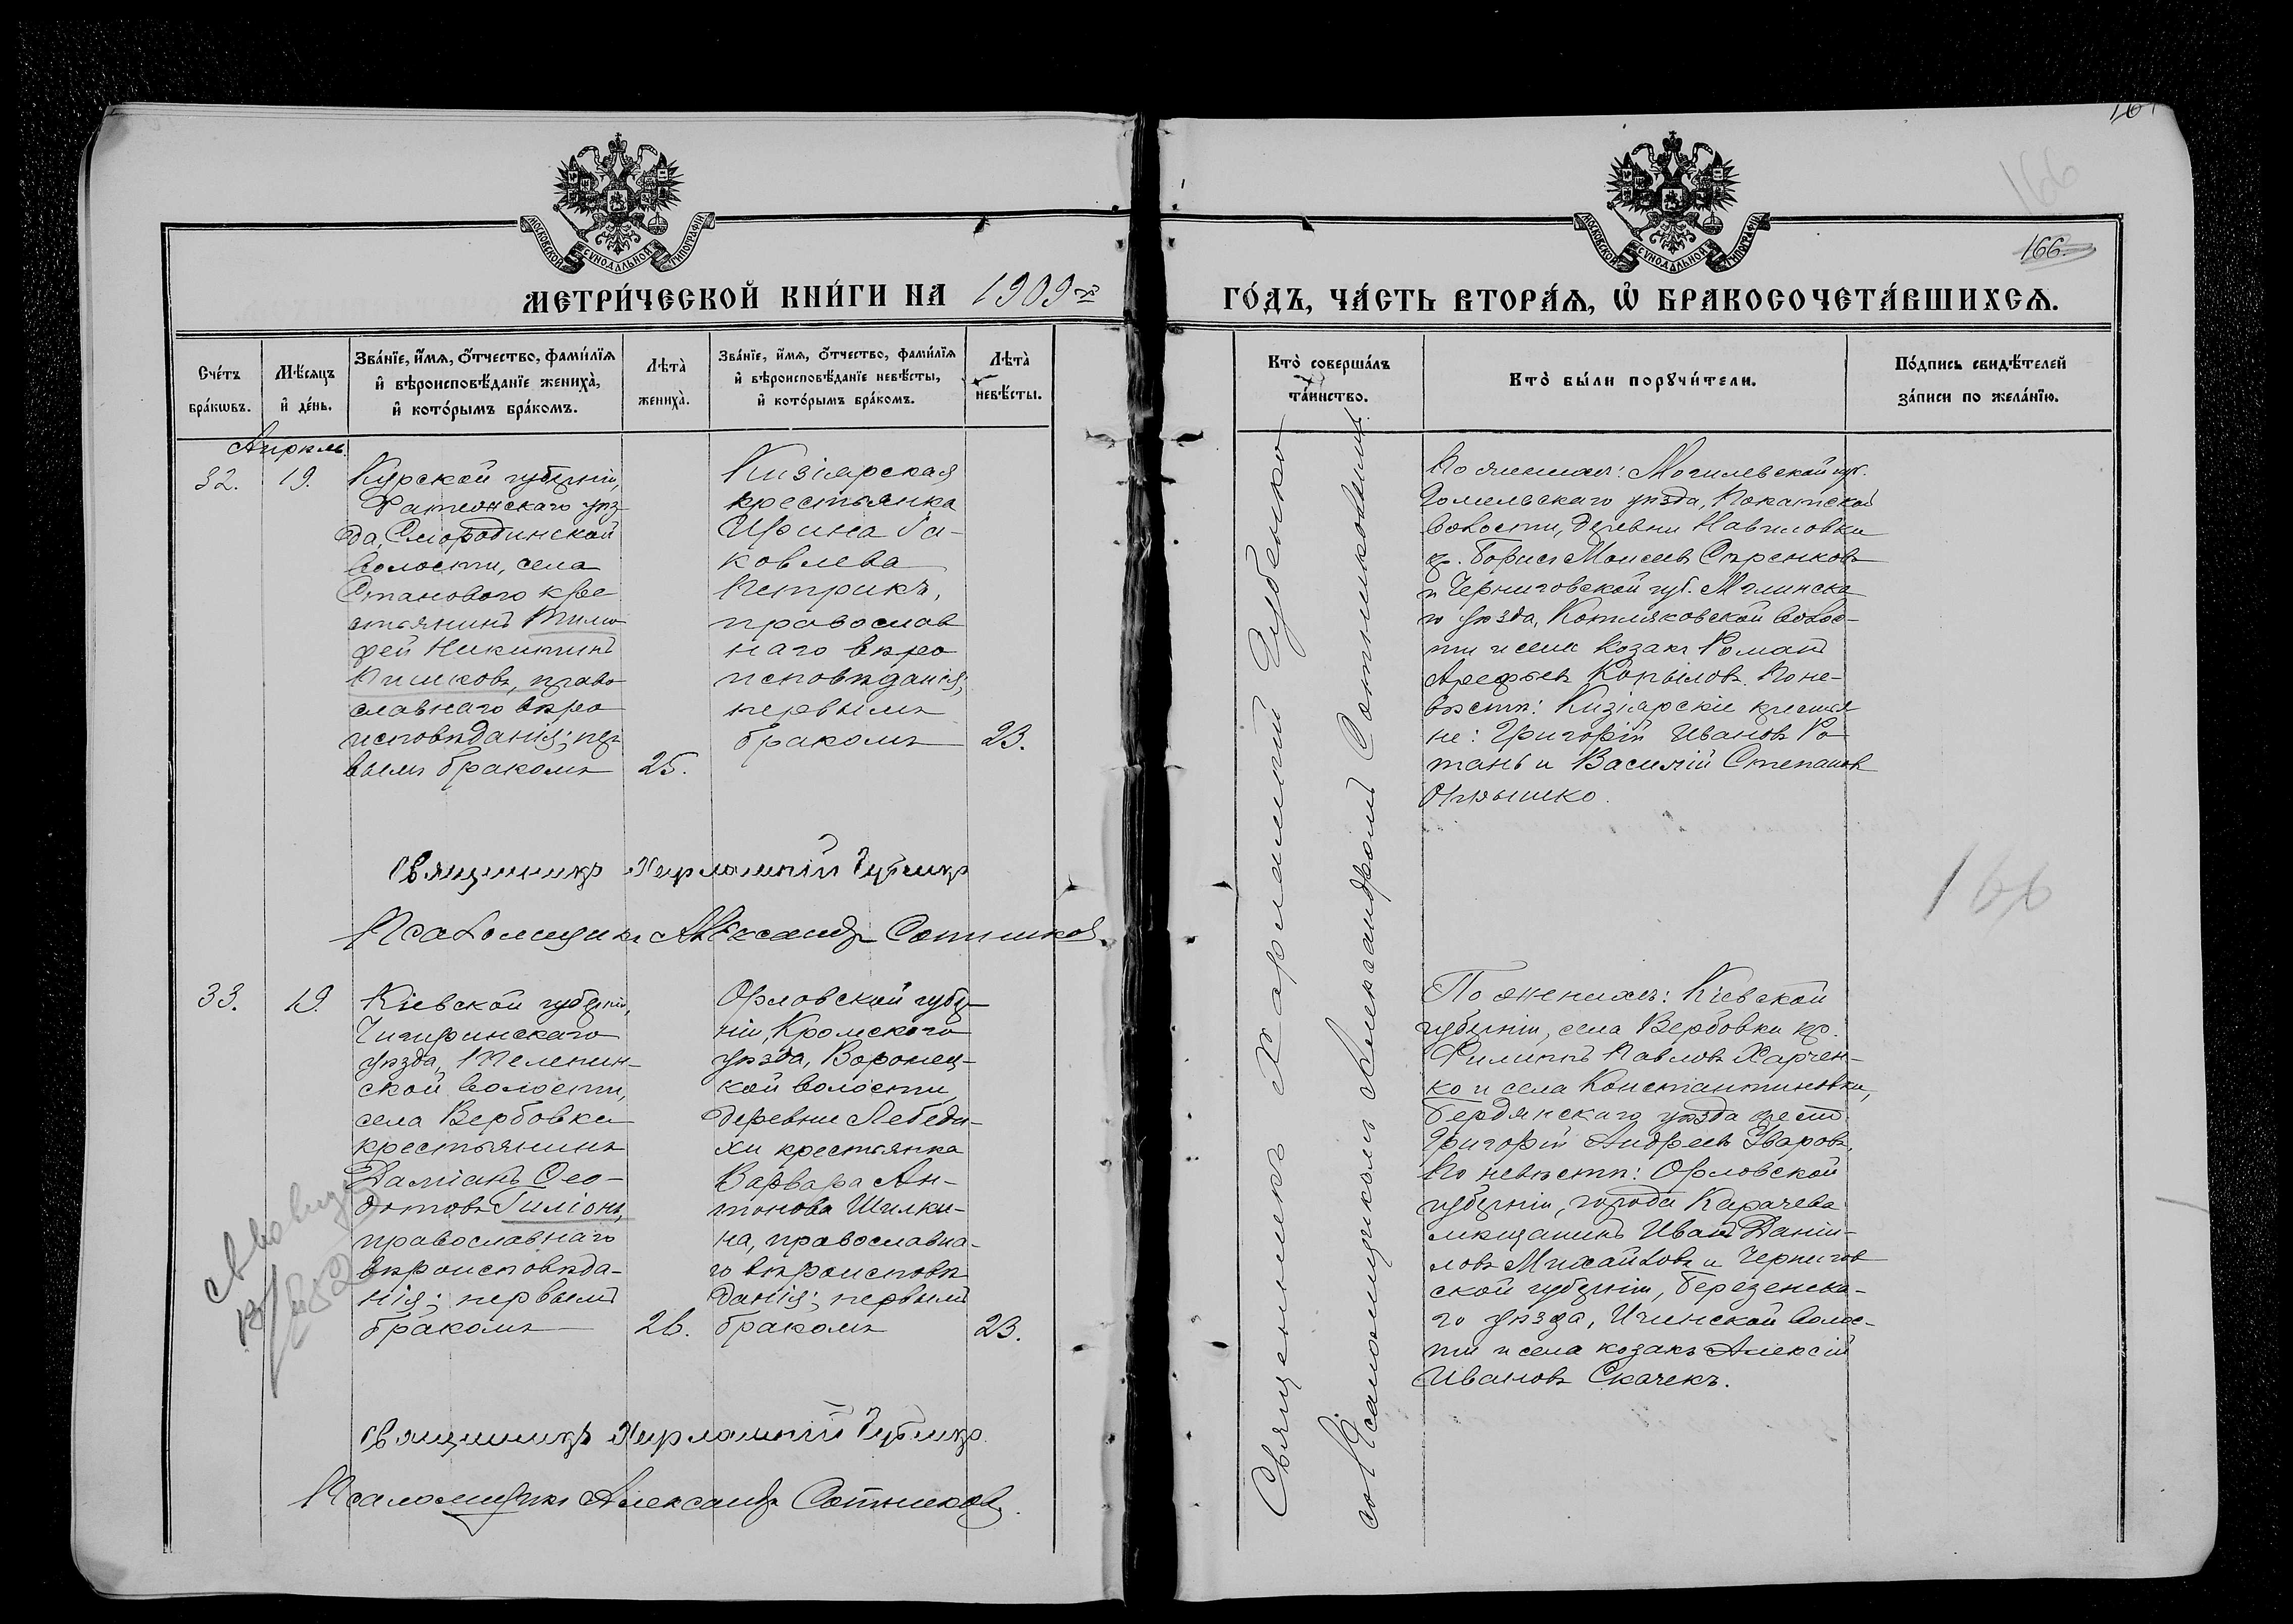 166
166.
МОСКОВСКОЙ СУНОДАЛЬНОЙ ТИПОГРАФІИ
МОСКОВСКОЙ СУНОДАЛЬНОЙ ТИПОГРАФІИ
МЕТРИ́ЧЕСКОЙ КНИ́ГИ НА 1909 г.
ГО́ДЪ, ЧА́СТЬ ВТОРА́Я, Ѡ БРАКОСОЧЕТА́ВШИХСЯ.
Сче́тъ бра́кѡвъ.
Мѣ́сяцъ и҆ де́нь.
Зва́нїе, и҆́мя, ѻ҆́тчество, фами́лїя
и҆ вѣроисповѣ́данїе женихà,
и҆ кото́рымъ бра́комъ.
Лѣтà женихà.
Зва́нїе, и҆́мя, ѻ҆́тчество, фами́лїя
и҆ вѣроисповѣ́данїе невѣ́сты,
и҆ кото́рымъ бра́комъ.
Лѣтà невѣ́сты.
Кто̀ соверша́лъ та́инство.
Кто̀ бы́ли порꙋчи́тели.
По́дпись свидѣ́телей
за́писи по жела́нїю.
Апрѣль
32.
19.
Курской губерніи,
Фатежскаго уѣз
да, Смородинской
волости, села
Станового кре
стьянинъ Тимо
фей Никитинъ
православнаго вѣро
исповѣданія; пер
вымъ бракомъ
25.
Кизіярская
крестьянка
Ирина Яковлева
Петрикъ,
православ
наго вѣро
исповѣданія;
первымъ
бракомъ
23.
По женихѣ: Могилевской губ.
Гомельскаго уѣзда,
волости, деревни
кр. Борисъ Моисеевъ
и Черниговской губ. Мглинска
го уѣзда, Котляковской волос-
ти и села козакъ Романъ
Арефьевъ Копыловъ. По не-
вѣстѣ: Кизіярскіе крестья
не: Григорій Ивановъ Ро
тань и Василій Степановъ
Священникъ Харлампій Губенко
Псаломщикъ Александръ Сотниковъ.
166
33.
19.
Кіевской губерніи,
Чигиринскаго
уѣзда,
ской волости,
села Вербовки
крестьянинъ
Даміанъ Ѳео-
дотовъ
православнаго
вѣроисповѣда-
нія; первымъ
бракомъ
26.
Орловской губер
ніи, Кромскаго
уѣзда, Воронец-
кой волости,
деревни Лебеди-
хи крестьянка
Варвара Ан-
тонова Шилки-
на, православна-
го вѣроисповѣ
данія; первымъ
бракомъ
23.
По женихѣ: Кіевской
губерніи, села Вербовки кр.
Филиппъ Павловъ Харчен-
ко и села Константиновки,
Бердянскаго уѣзда крест.
Григорій Андреевъ Уваровъ.
По невѣстѣ: Орловской
губерніи, города Карачева
мѣщанинъ Иванъ Даніи-
ловъ Михайловъ и Чернигов
ской губерніи, Березенска-
го уѣзда, Ичинской волос-
ти и села козакъ Алексій
Ивановъ Скачекъ.
Священникъ Харлампій Губенко
Псаломщикъ Александръ Сотниковъ.
Священникъ Харлампій Губенко
со Псаломщикомъ Александромъ Сотниковымъ.